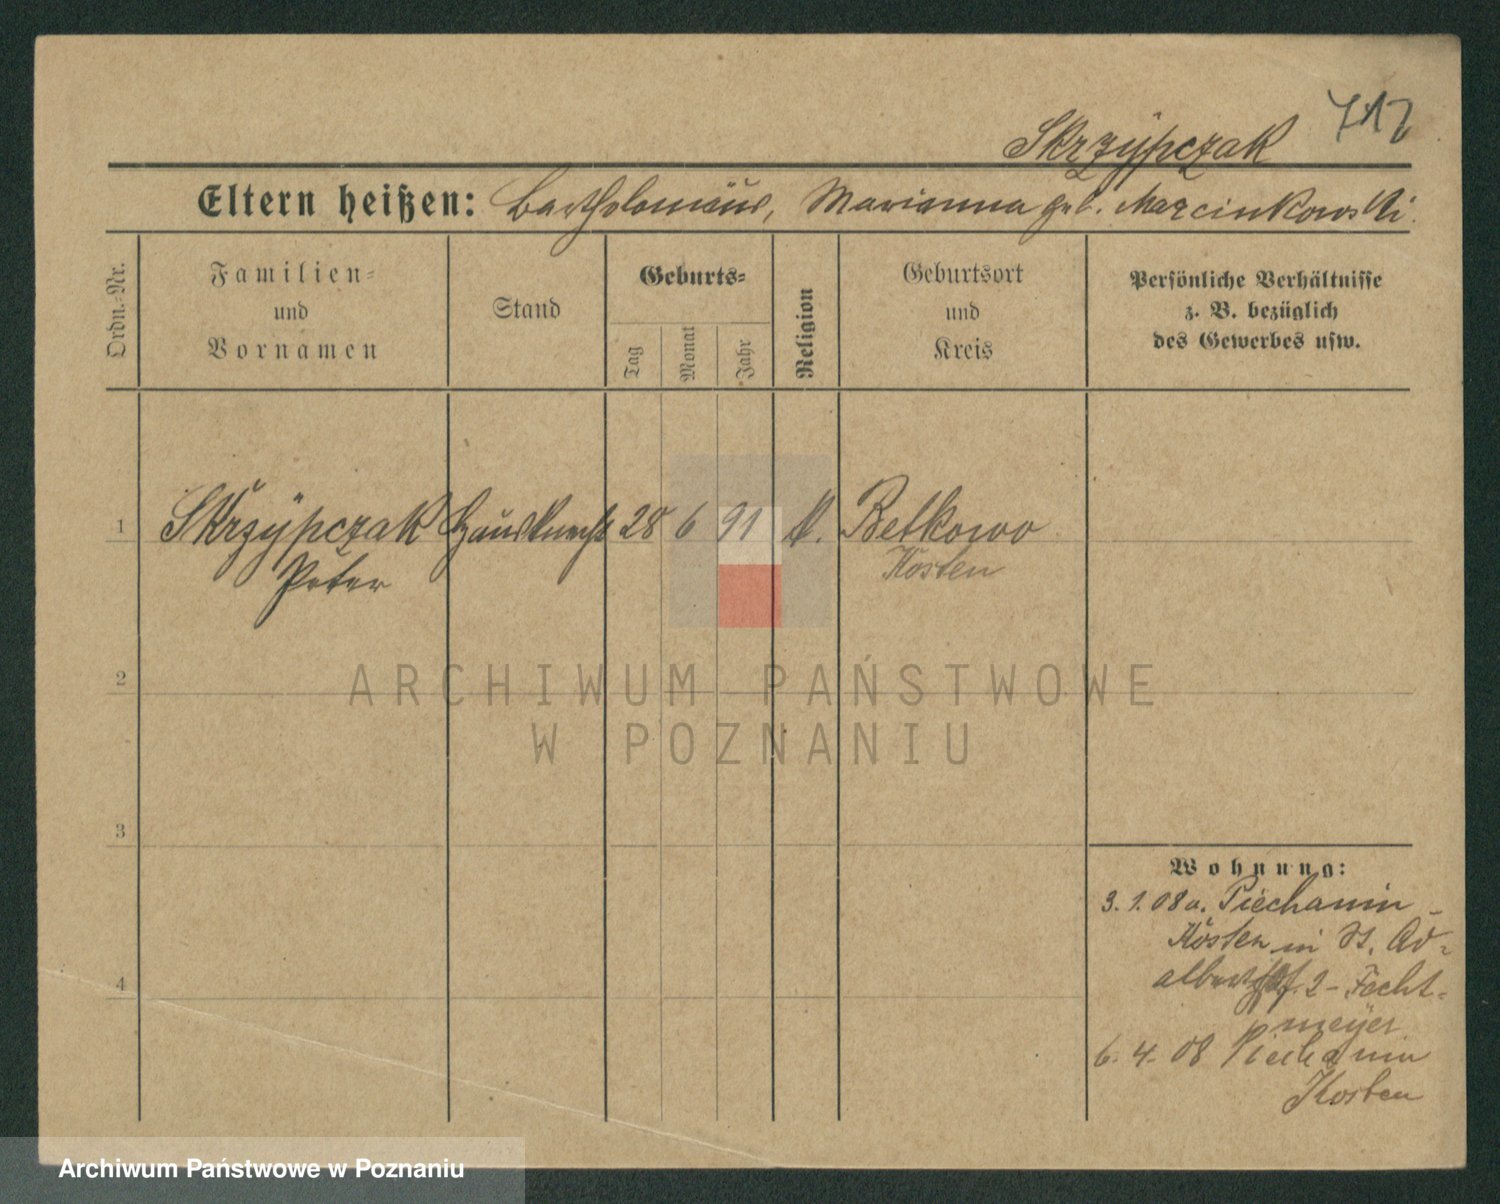 712
Skrzÿpczak
Eltern heißen: Bartholomäus, Marianna geb. Marcinkowski.
Ordn.-Nr.
Familien-
und
Vornamen
Stand
Geburts-
Tag
Monat
Jahr
Religion
Geburtsort
und
Kreis
Persönliche Verhältnisse
z. B. bezüglich
des Gewerbes usw.
1 Skrzÿpczak Hausknecht 28 6 91 k. Betkowo
Peter Kosten
2
3
4
Wohnung:
3. 1. 08 a. Piechanin -
Kosten in St. Ad-
albert 2 - Fecht-
meÿer
6. 4. 08 Piechanin
Kosten
ARCHIWUM PAŃSTWOWE
W POZNANIU
Archiwum Państwowe w Poznaniu